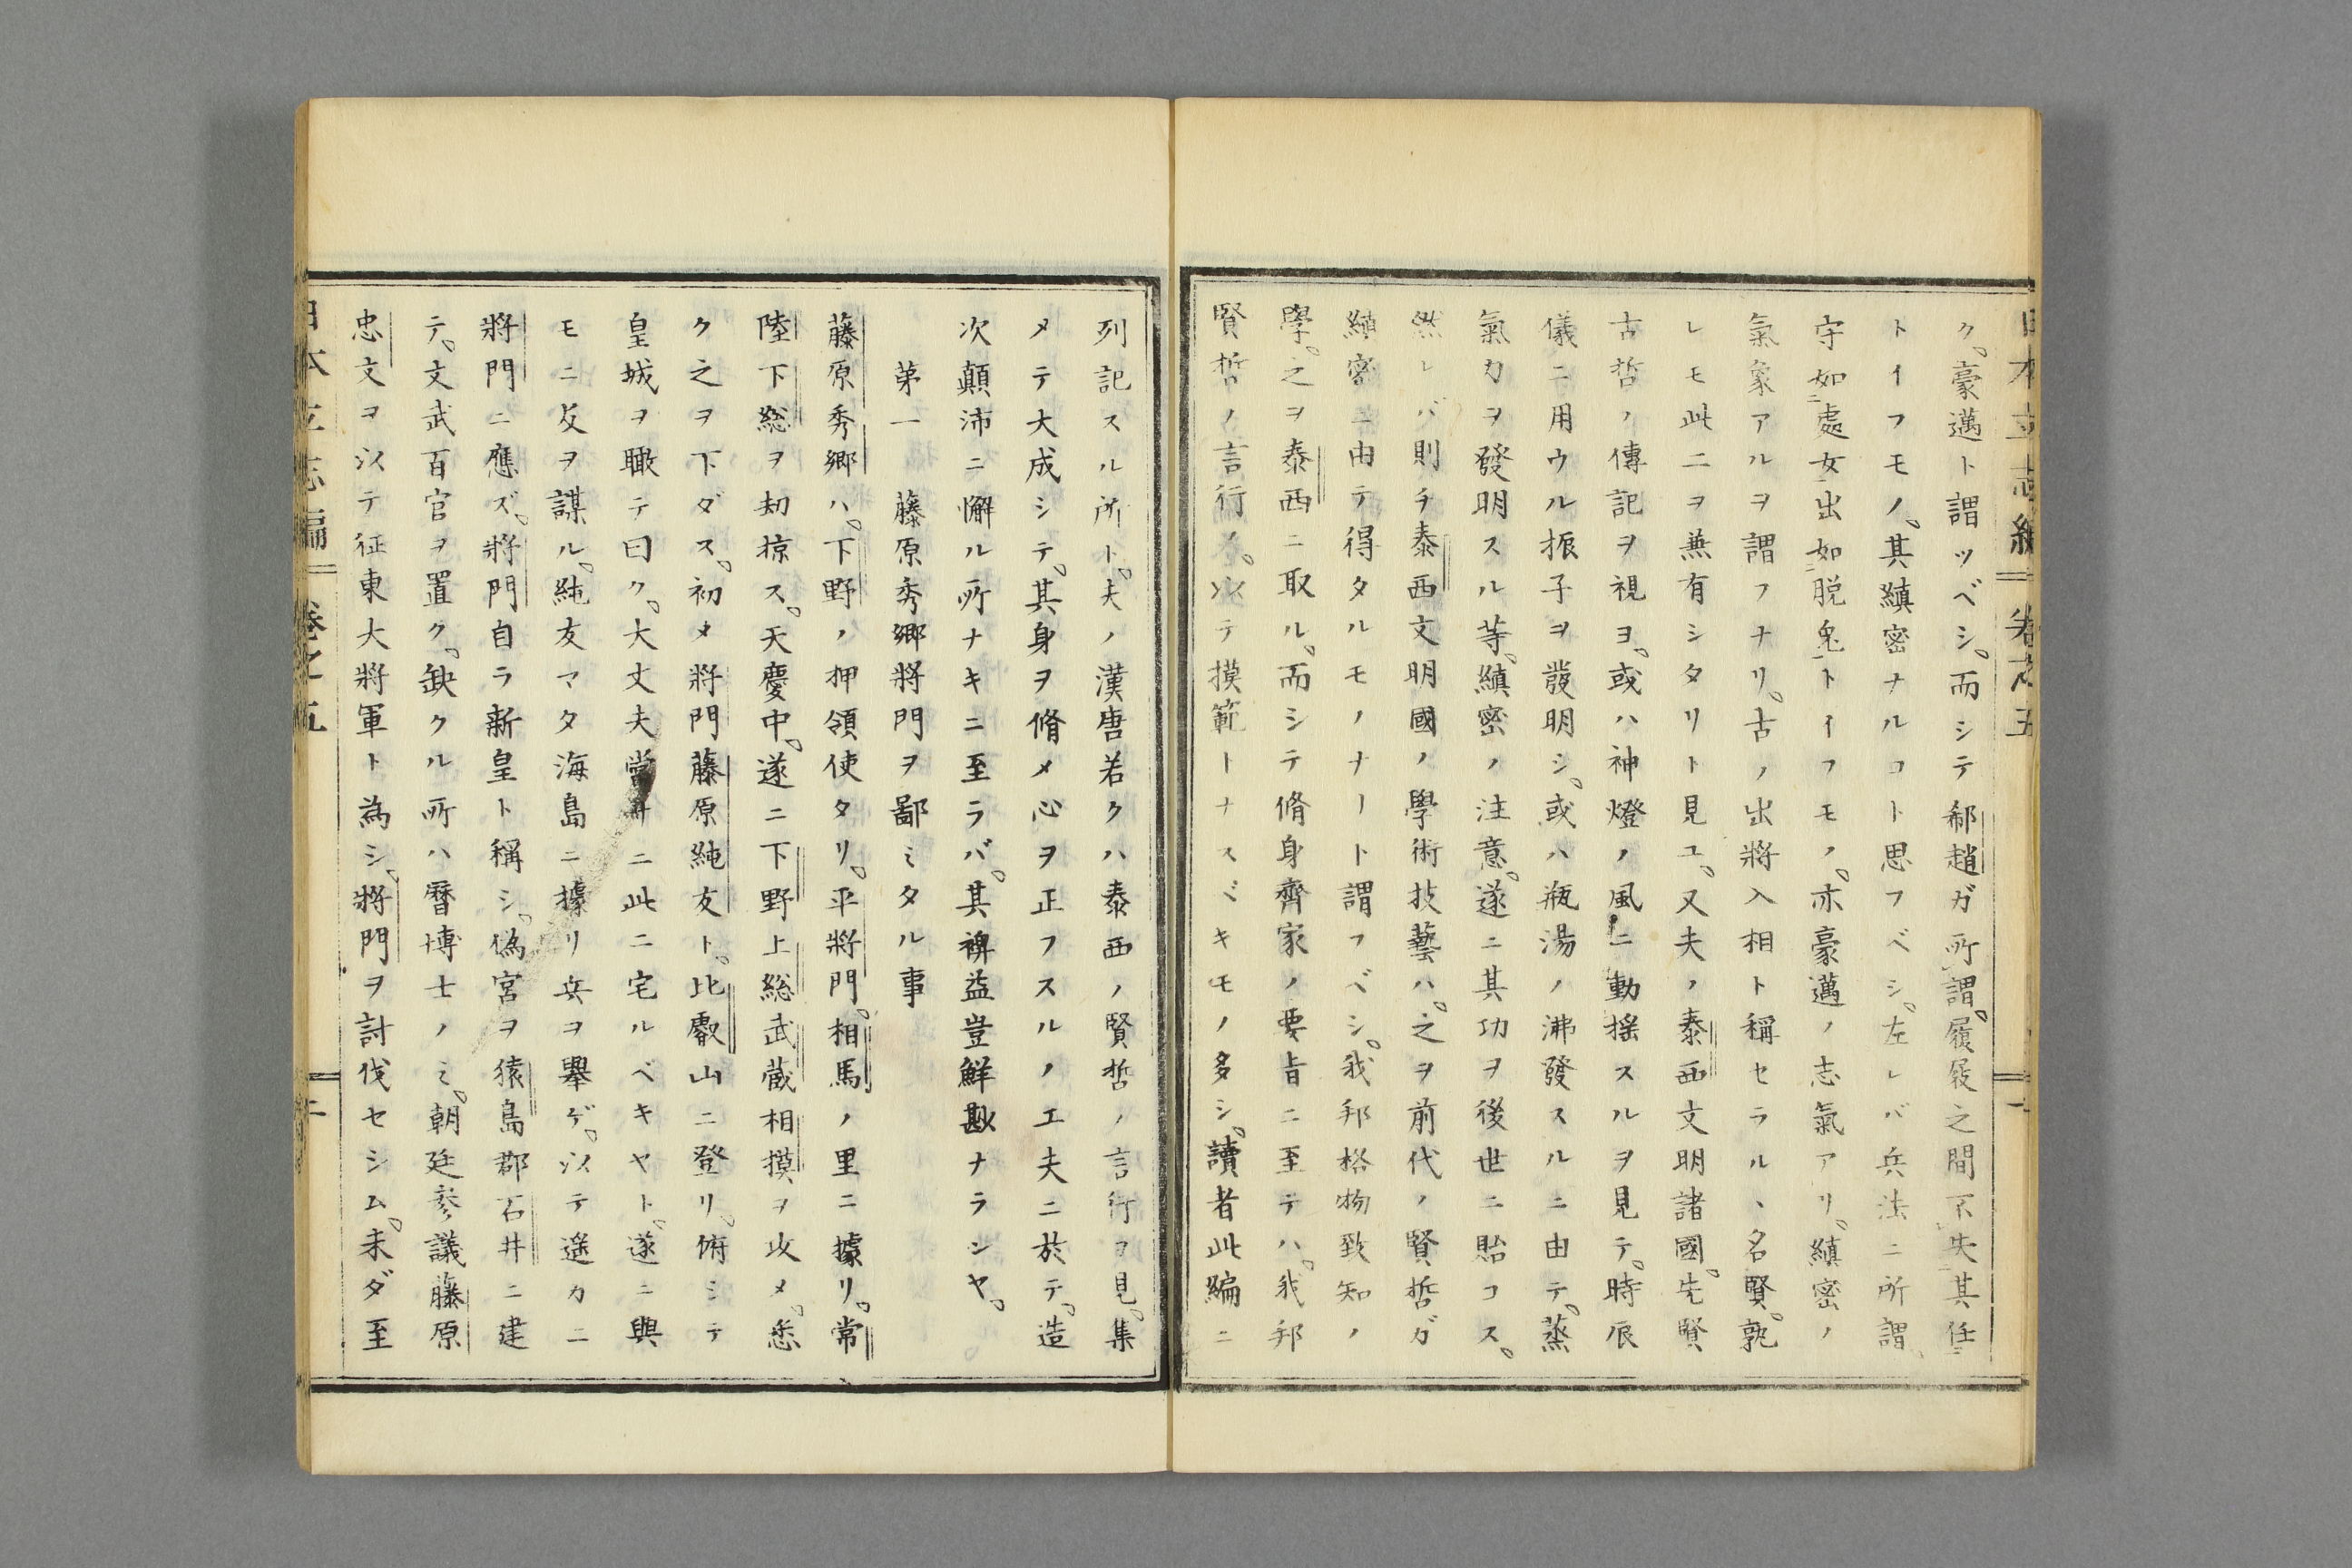 日本立志編 卷之五 一
ク。豪邁ト謂ツベシ。而シテ郗趙ガ所謂。履屐之間不失其任
トイフモノ。其縝密ナルコト思フベシ。左レバ兵法ニ所謂。
守如処女出如脱兔トイフモノ。亦豪邁ノ志氣アリ。縝密ノ
氣象アルヲ謂フナリ。古ノ出將入相ト稱セラルヽ名賢。孰
レモ此二ヲ兼有シタリト見ユ。又夫ノ泰西文明諸國。先賢
古哲ノ傳記ヲ視ヨ。或ハ神燈ノ風ニ動搖スルヲ見テ。時辰
儀ニ用ウル振子ヲ發明シ。或ハ瓶湯ノ沸發スルニ由テ。蒸
氣力ヲ發明スル等。縝密ノ注意。遂ニ其功ヲ後世ニ貽コス。
然レバ則チ泰西文明國ノ學術技藝ハ。之ヲ前代ノ賢哲ガ
縝密ニ由テ得タルモノナリト謂フベシ。我邦格物致知ノ
學。之ヲ泰西ニ取ル。而シテ脩身齊家ノ要旨ニ至テハ。我邦
賢哲ノ言行ノ。以テ摸範トナスベキモノ多シ。讀者此編ニ
列記スル所ト。夫ノ漢唐若クハ泰西ノ賢哲ノ言行ヲ見。集
メテ大成シテ。其身ヲ脩メ心ヲ正フスルノ工夫ニ於テ。造
次顛沛ニ懈ル所ナキニ至ラバ。其裨益豈鮮尠ナランヤ。
第一 藤原秀郷將門ヲ鄙ミタル事
藤原秀郷ハ。下野ノ押領使タリ。平將門。相馬ノ里ニ據リ。常
陸下総ヲ刧掠ス。天慶中。遂ニ下野上総武蔵相摸ヲ攻メ。悉
ク之ヲ下ダス。初メ將門藤原純友ト。比叡山ニ登リ。俯シテ
皇城ヲ瞰テ曰ク。大丈夫當サニ此ニ宅ルベキヤト。遂ニ與
モニ反ヲ謀ル。純友マタ海島ニ據リ兵ヲ擧ゲ。以テ遙カニ
將門ニ應ズ。將門自ラ新皇ト稱シ。偽宮ヲ猿島郡石井ニ建
テ。文武百官ヲ置ク。缺クル所ハ暦博士ノミ。朝廷參議藤原
忠文ヲ以テ征東大將軍ト為シ。將門ヲ討伐セシム。未ダ至
日本立志編 卷之五